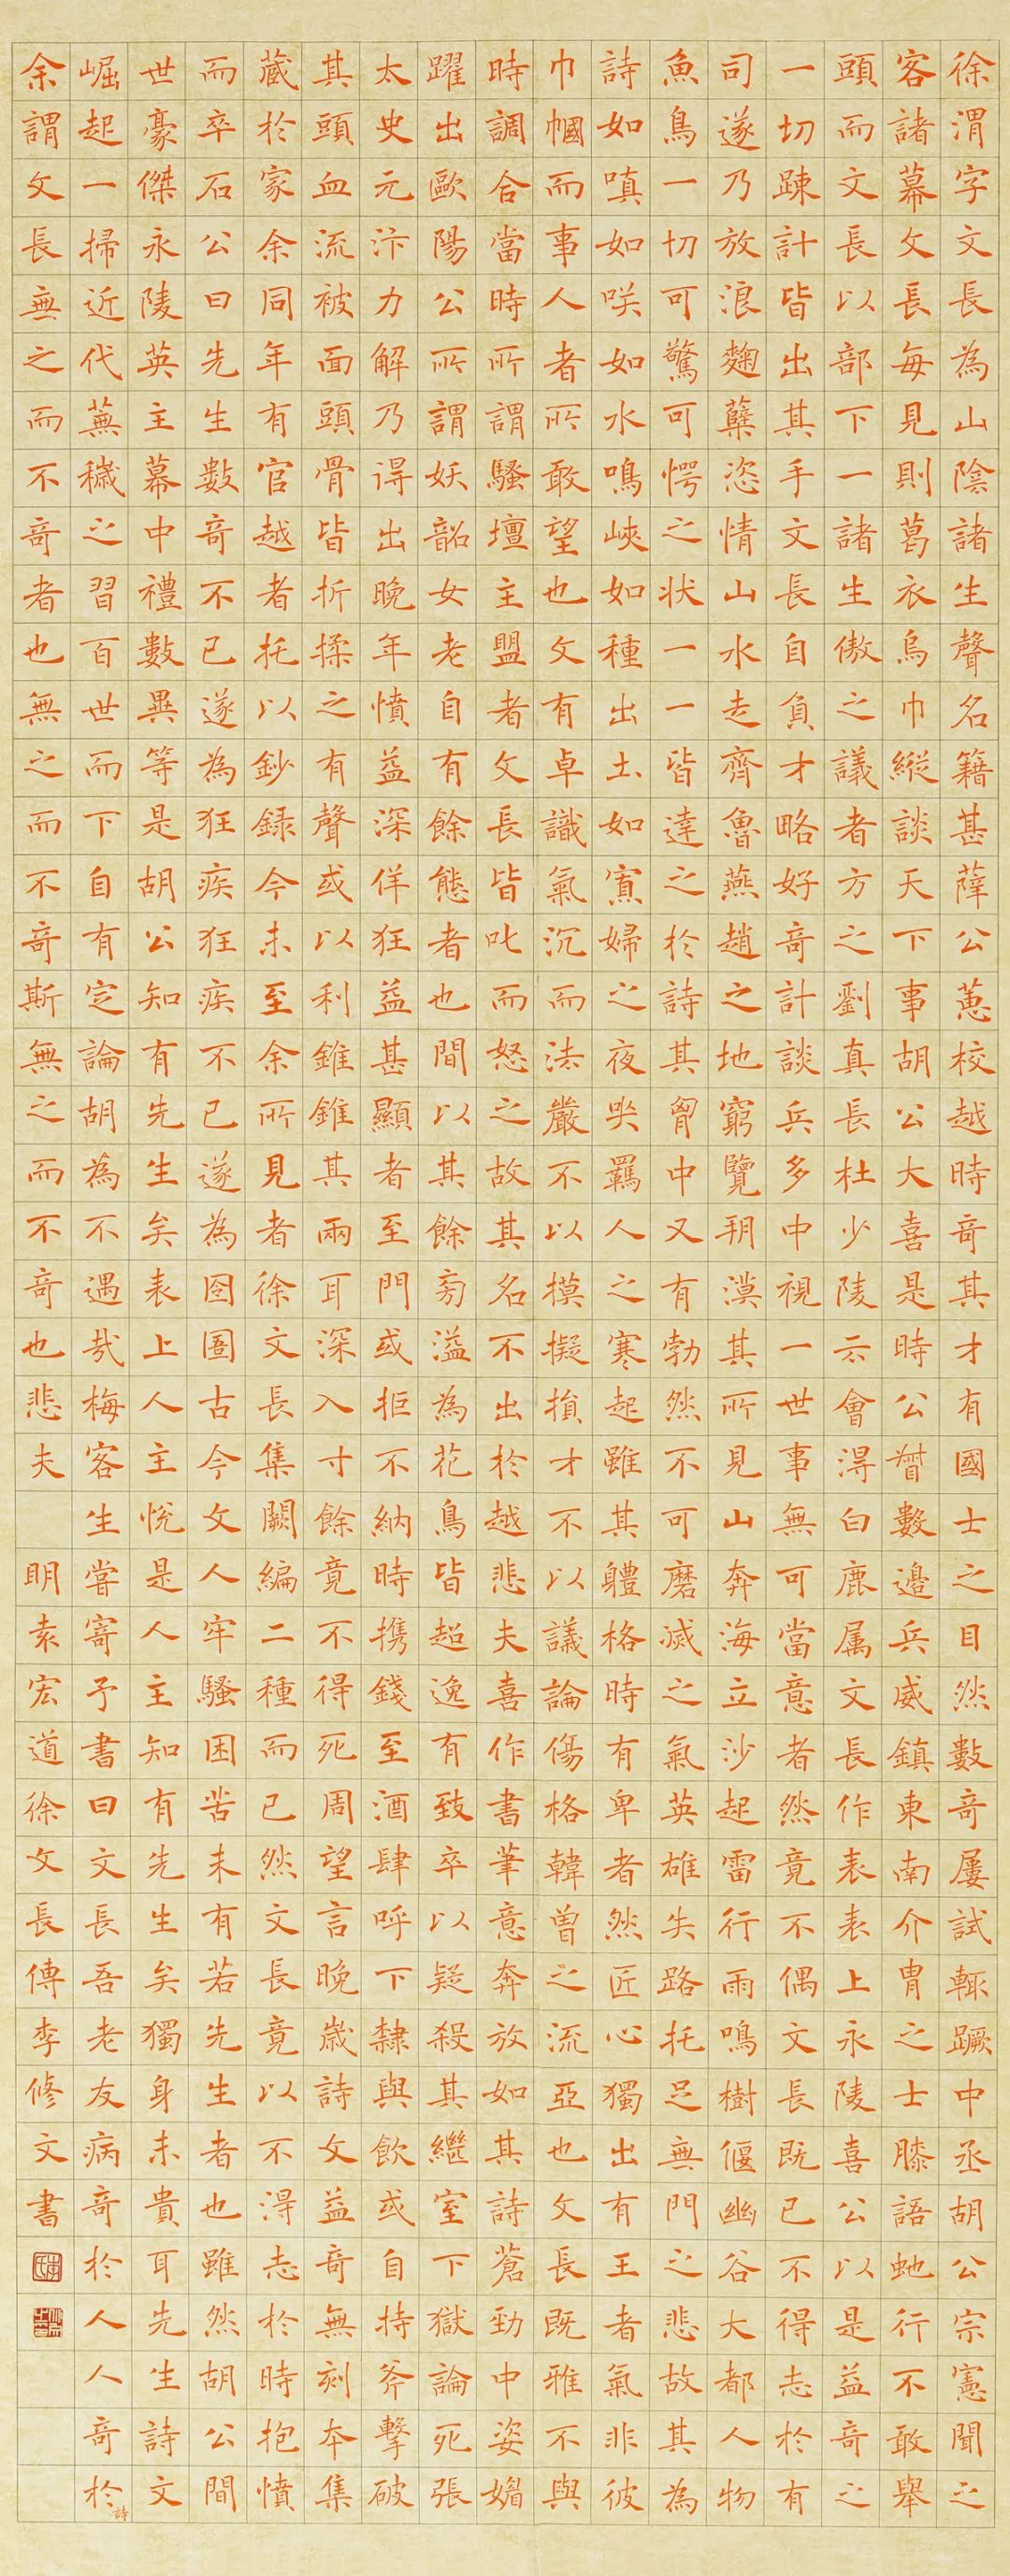 徐渭字文長為山陰諸生聲名籍甚薛公蕙校越時奇其才有國士之目然數奇屢試輒蹶中丞胡公宗憲聞之
客諸幕文長每見則葛衣烏巾縱談天下事胡公大喜是時公督數邊兵威鎮東南介冑之士膝語虵行不敢舉
頭而文長以部下一諸生傲之議者方之劉真長杜少陵云會得白鹿属文長作表表上永陵喜公以是益奇之
一切踈計皆出其手文長自負才略好奇計談兵多中視一世事無可當意者然竟不偶文長既已不得志於有
司遂乃放浪麴糵恣情山水走齊魯燕趙之地窮覽朔漠其所見山奔海立沙起雷行雨鳴樹偃幽谷大都人物
魚鳥一切可驚可愕之狀一一皆達之於詩其胷中又有勃然不可磨滅之氣英雄失路托足無門之悲故其為
詩如嗔如咲如水鳴峽如種出土如寡婦之夜哭羈人之寒起雖其軆格時有卑者然匠心獨出有王者氣非彼
巾幗而事人者所敢望也文有卓識氣沉而法嚴不以摸擬損才不以議論傷格韓曾之流亞也文長既雅不與
時調合當時所謂騷壇主盟者文長皆叱而怒之故其名不出於越悲夫喜作書筆意奔放如其詩蒼勁中姿媚
躍出歐陽公所謂妖韶女老自有餘態者也間以其餘旁溢為花鳥皆超逸有致卒以疑殺其繼室下獄論死張
太史元汴力解乃得出晚年憤益深佯狂益甚顯者至門或拒不納時携錢至酒肆呼下隸與飲或自持斧擊破
其頭血流被面頭骨皆折揉之有聲或以利錐錐其兩耳深入寸餘竟不得死周望言晚歲詩文益奇無刻本集
藏於家余同年有官越者托以鈔録今未至余所見者徐文長集闕編二種而已然文長竟以不得志於時抱憤
而卒石公曰先生數奇不已遂為狂疾狂疾不已遂為囹圄古今文人牢騷困苦未有若先生者也雖然胡公間
世豪傑永陵英主幕中禮數異等是胡公知有先生矣表上人主悅是人主知有先生矣獨身未貴耳先生詩文
崛起一掃近代蕪穢之習百世而下自有定論胡為不遇哉梅客生嘗寄予書曰文長吾老友病奇於人人奇於詩
余謂文長無之而不奇者也無之而不奇斯無之而不奇也悲夫 明袁宏道徐文長傳李修文書